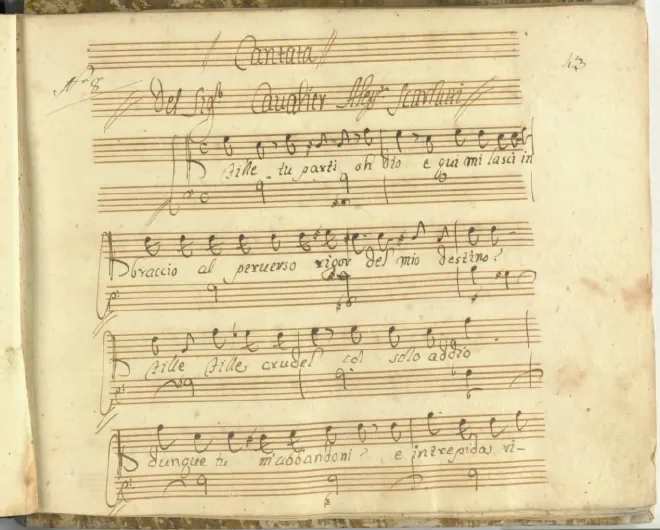 Cantata
43
N.º 8
Del Sig.r Cavalier Aless.o Scarlatti
Fille tu parti oh dio e qui mi lasci in
braccio al peruerso rigor del mio destino?
Fille Fille crudel col solo addio
dunque tu m'abbandoni? e intrepida vi-